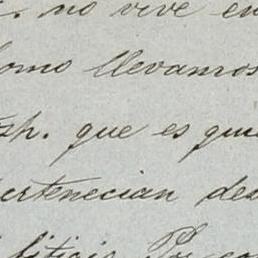 no vive en
como llevamos
que es qui
pertenecian des
Por